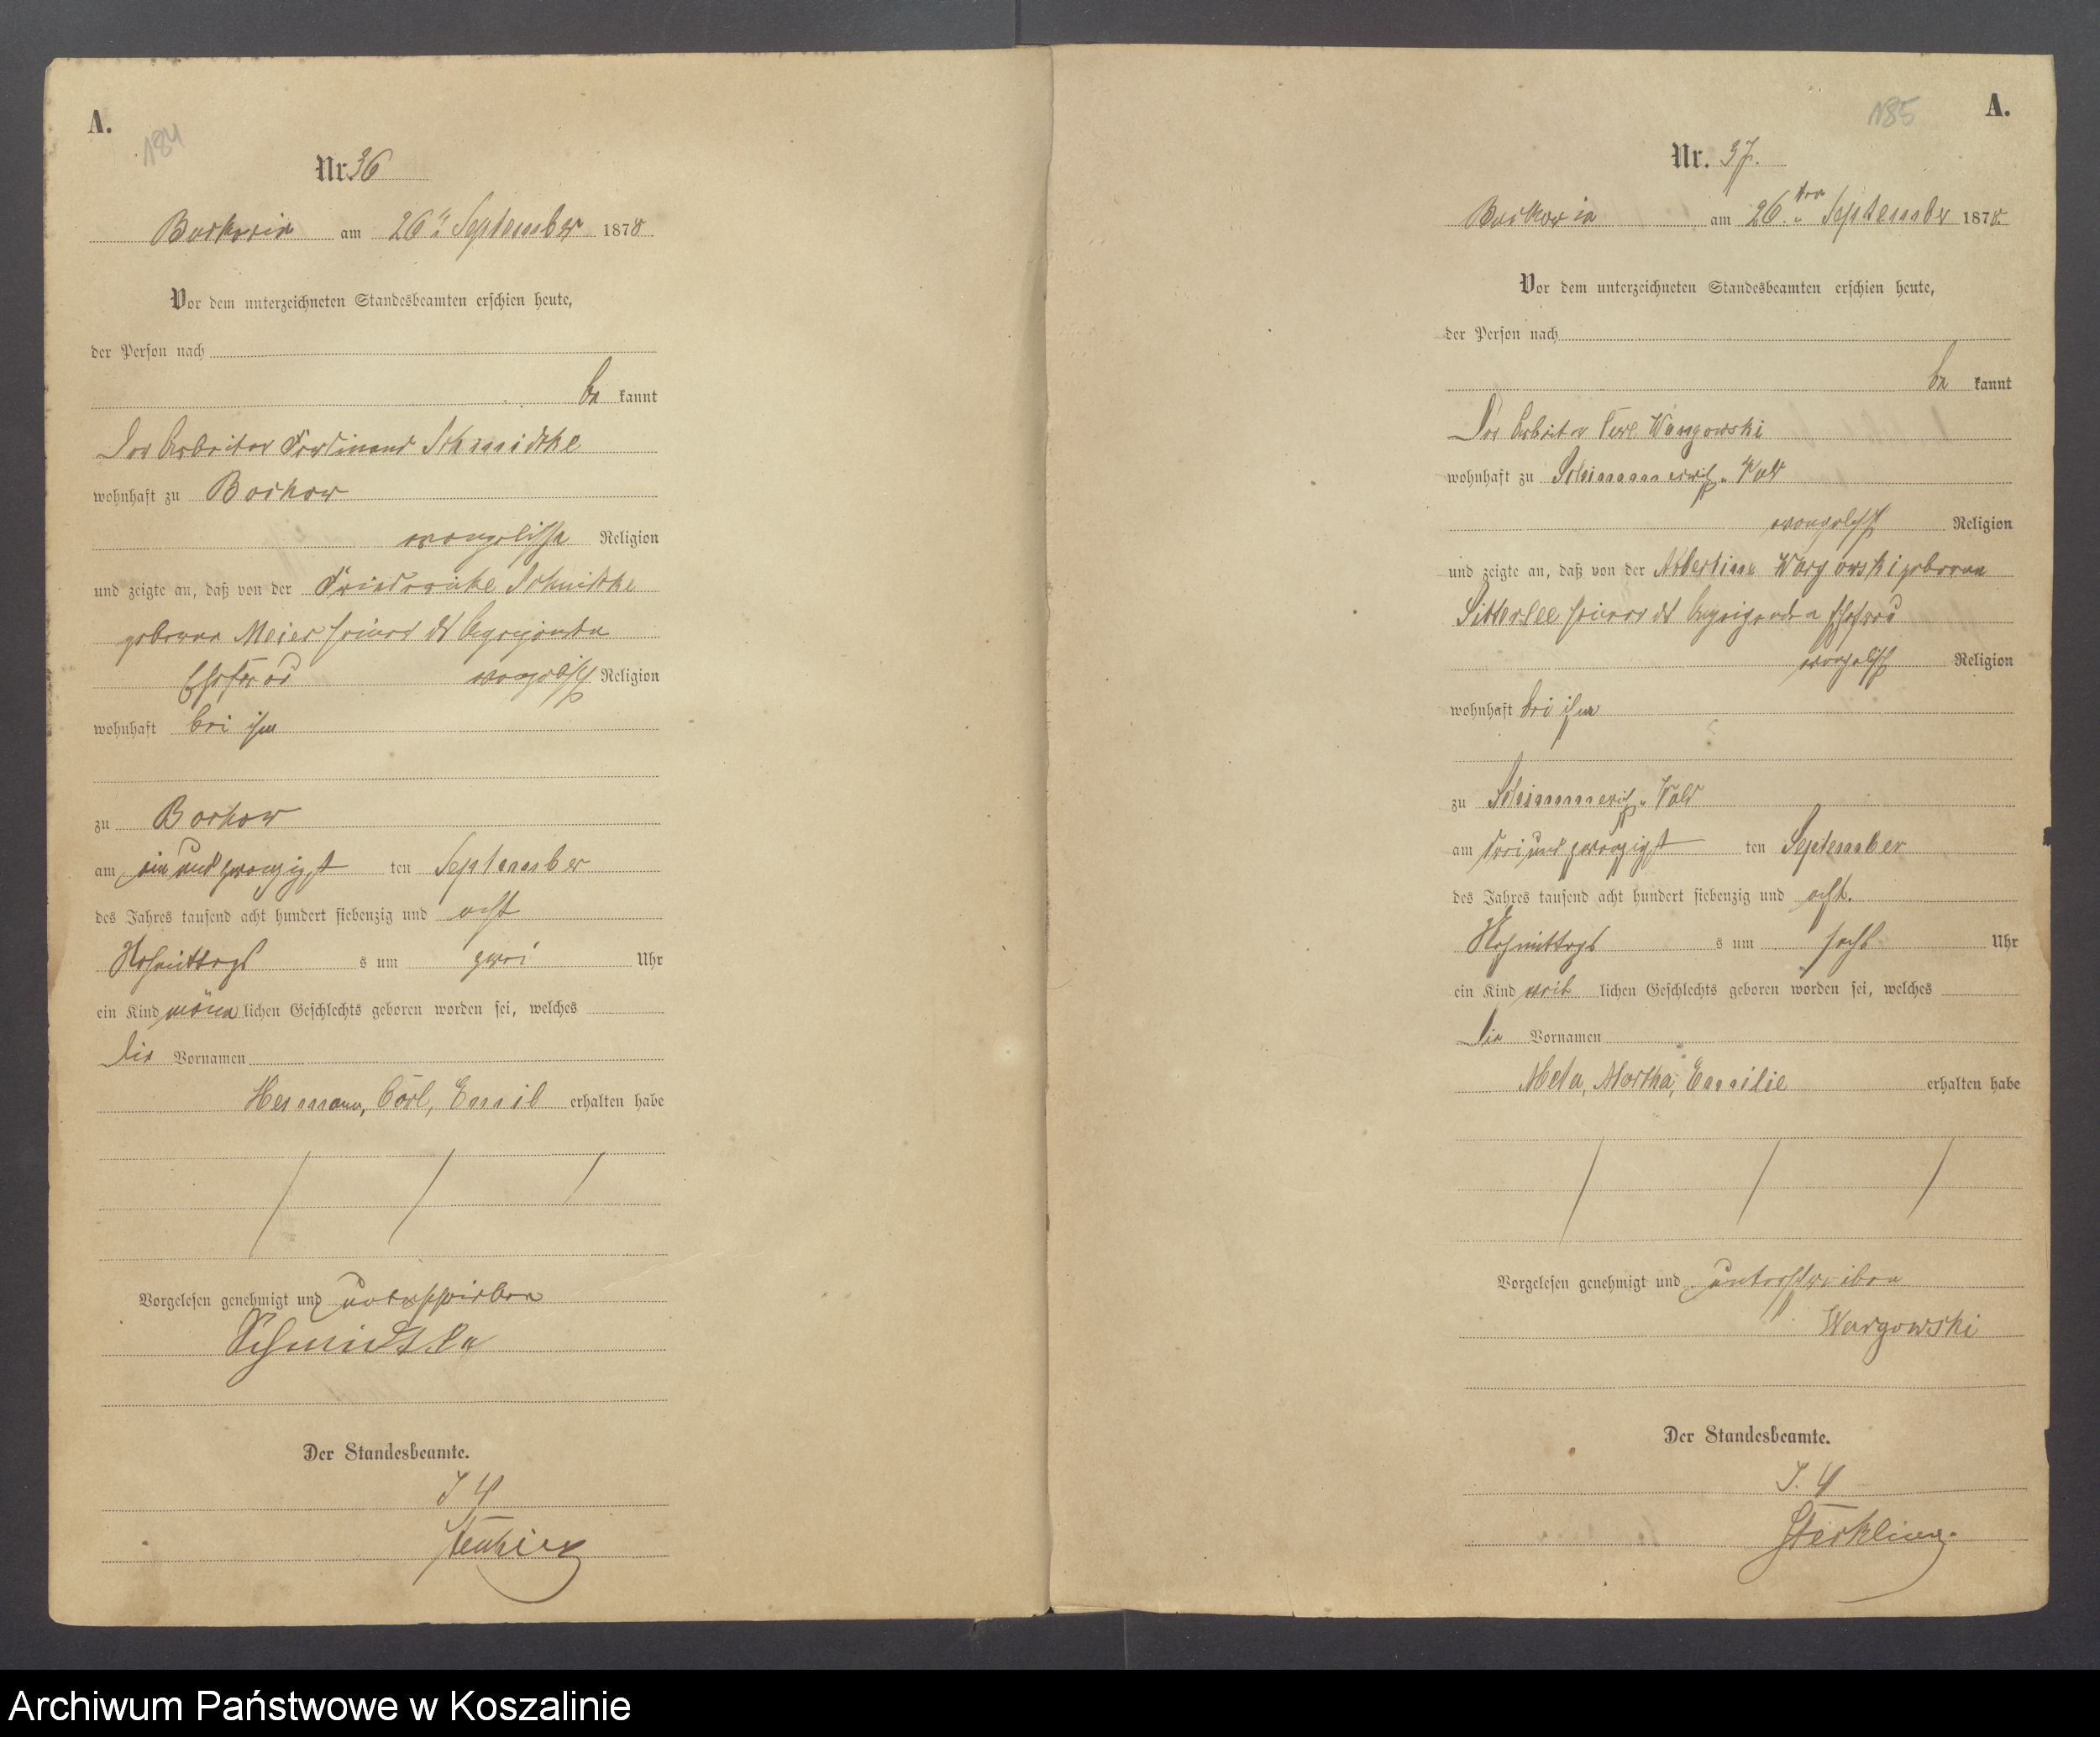 A.
184
Nr. 36
am 26ten September 1878
Vor dem unterzeichneten Standesbeamten erschien heute,
der Person nach
be kannt
der Arbeiter Ferdinand Schmidtke
wohnhaft zu Borkow
evangelischer Religion
und zeigte an, daß von der Friedericke Schmidtke
geborene Meier seiner
Ehefrau evangelisch Religion
wohnhaft bei ihm
zu Borkow
am ein und zwanzigst ten September
des Jahres tausend acht hundert siebenzig und acht
Nachmittags s um zwei Uhr
ein Kind männ lichen Geschlechts geboren worden sei, welches
die Vornamen
Hermann, Carl, Emil erhalten habe
Vorgelesen genehmigt und unterschrieben
Schmidtke
Der Standesbeamte.
185
A.
Nr. 37.
am 26ten September 1878.
Vor dem unterzeichneten Standesbeamten erschien heute,
der Person nach
be kannt
Der Arbeiter Wargowski
wohnhaft zu
evangelisch Religion
und zeigte an, daß von der Albertine Wargowski geborene
seiner Ehefrau
evangelisch Religion
wohnhaft bei ihm
zu
am drei und zwanzigst ten September
des Jahres tausend acht hundert siebenzig und acht.
Nachmittags s um sechs Uhr
ein Kind weib lichen Geschlechts geboren worden sei, welches
die Vornamen
Meta, Martha, Emilie erhalten habe
Vorgelesen genehmigt und unterschrieben
Wargowski
Der Standesbeamte.
Archiwum Państwowe w Koszalinie